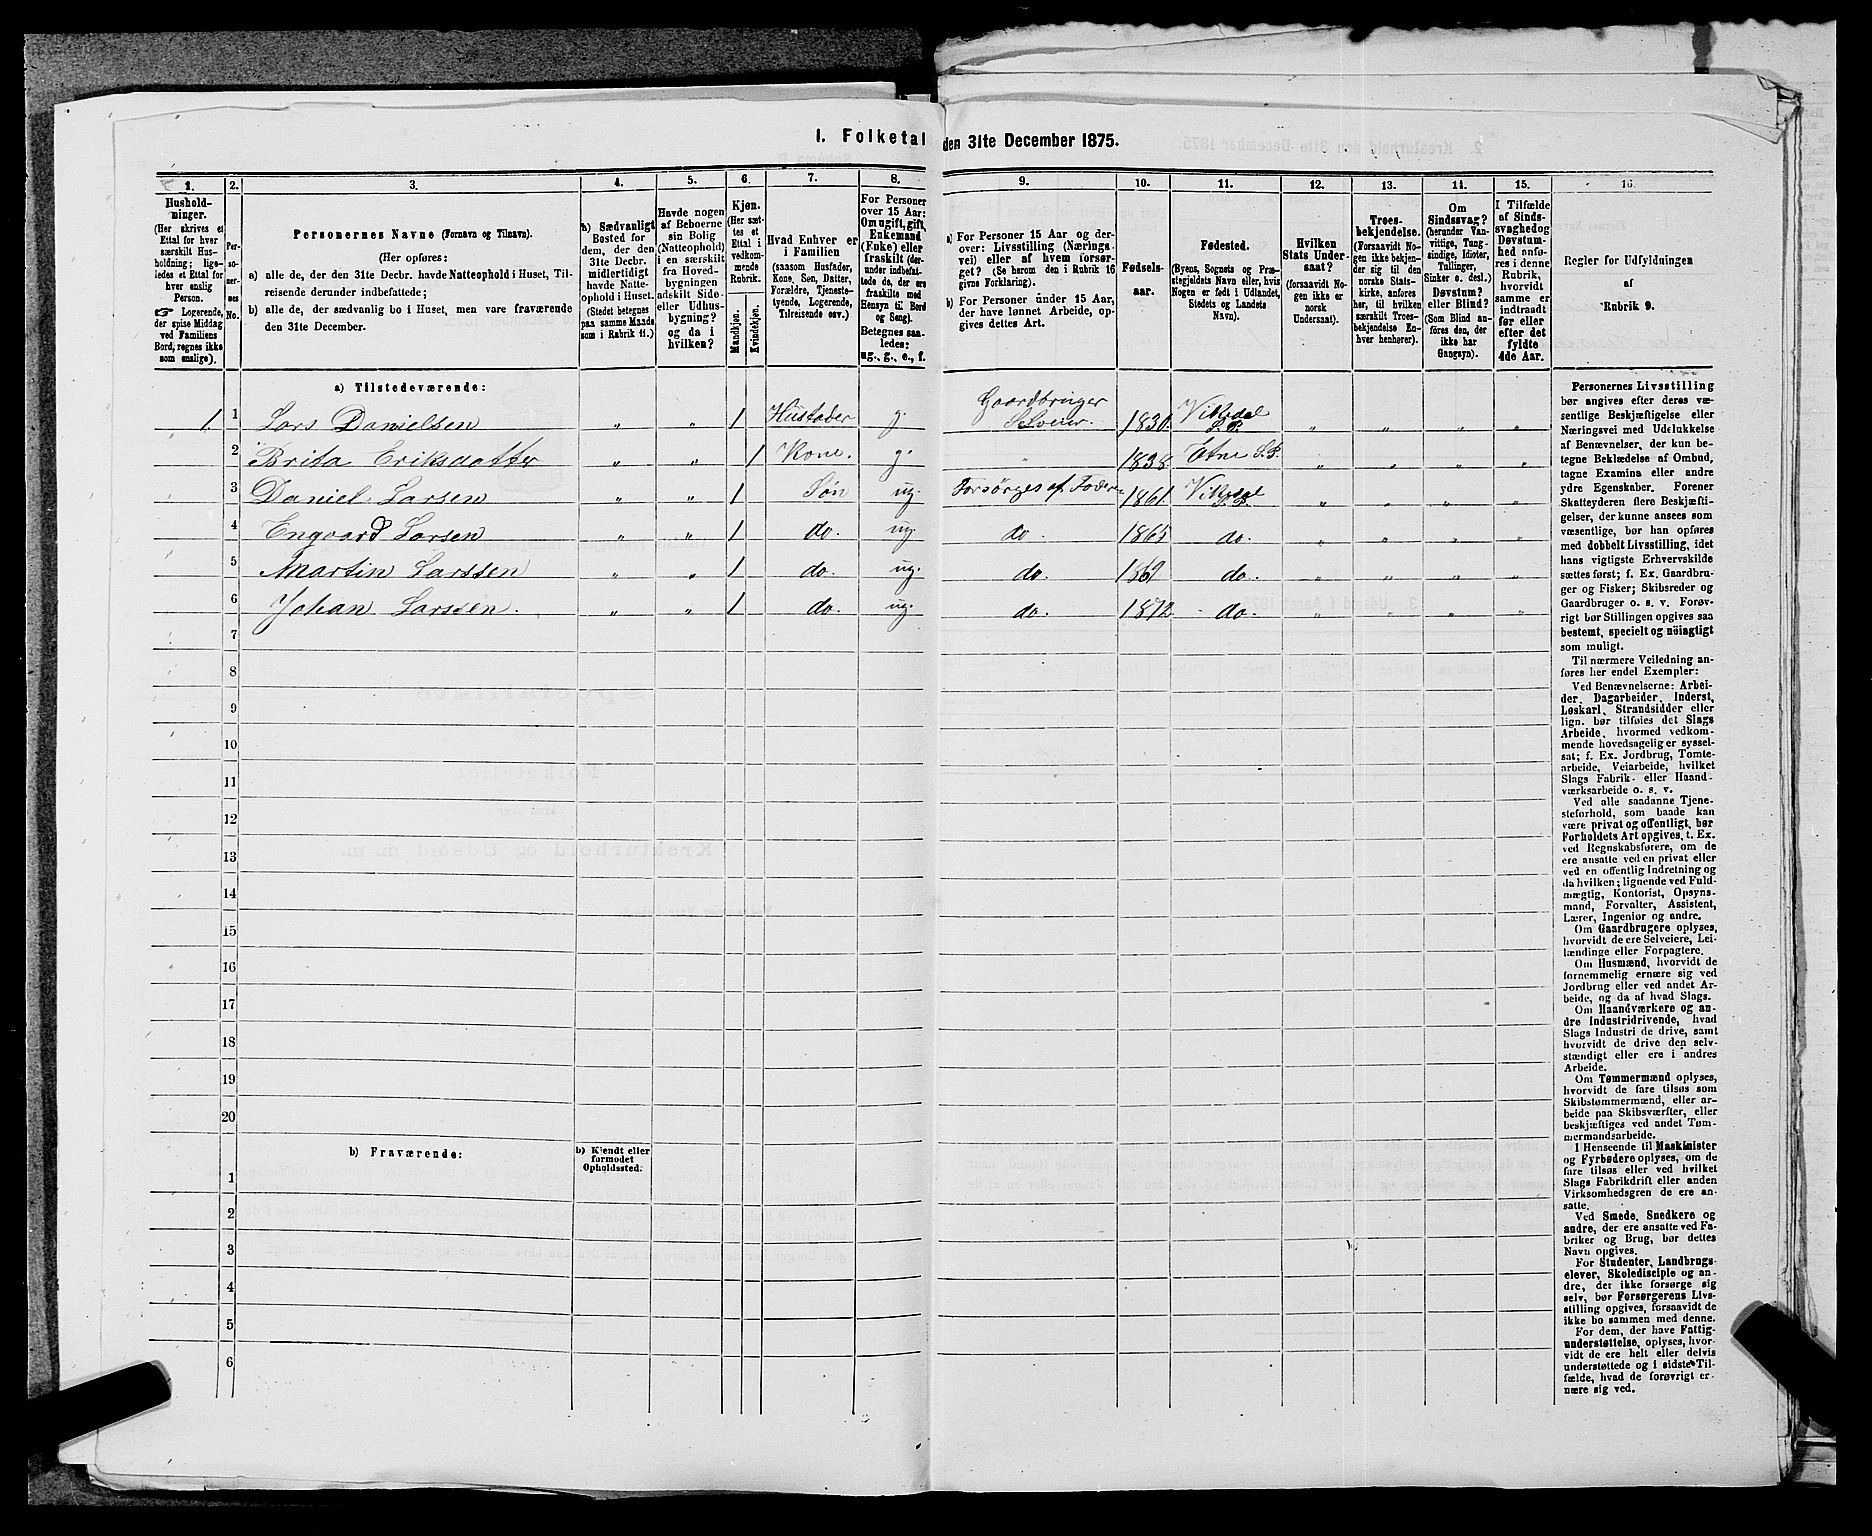 I. Folketal den 31te December 1875.
1. 2. 3. 4. 5. 6. 7. 8. 9. 10. 11. 12. 13. 14. 15. 16.
Hushold-
ninger.
(Her skrives et
Ettal for hver
særskilt Hus-
holdning; lige-
ledes et Ettal for
hver enslig
Person.
☞ Logerende,
der spise Middag
ved Familiens
Bord, regnes ikke
som enslige).
Per-
so-
ner-
nes
No.
Personernes Navne (Fornavn og Tilnavn).
(Her opføres:
a) alle de, der den 31te Decbr. havde Natteophold i Huset, Til-
reisende derunder indbefattede;
b) alle de, der sædvanlig bo i Huset, men vare fraværende
den 31te December.
a) Sædvanligt
Bosted for
dem, der den
31te Decbr.
midlertidigt
havde Natte-
ophold i Huset.
(Stedet betegnes
paa samme Maade
som i Rubrik 11.)
Havde nogen
af Beboerne
sin Bolig
(Natteophold)
i en særskilt
fra Hoved-
bygningen
adskilt Side-
eller Udhus-
bygning?
og da i
hvilken?
Kjøn.
(Her sæt-
tes et
Ettal i
vedkom-
mende
Rubrik.
Mandkjøn.
Kvindekjøn.
Hvad Enhver er
i Familien
(saasom Husfader,
Kone, Søn, Datter,
Forældre, Tjeneste-
tyende, Logerende,
Tilreisende osv.)
For Personer
over 15 Aar:
Om ugift, gift,
Enkemand
(Enke) eller
fraskilt (der-
under indbefat-
tede de, der ere
fraskilte med
Hensyn til Bord
og Seng).
Betegnes saa-
ledes:
ug., g., e., f.
a) For Personer 15 Aar og der-
over: Livsstilling (Nærings-
vei) eller af hvem forsør-
get? (Se herom den i Rubrik 16
givne Forklaring).
b) For Personer under 15 Aar,
der have lønnet Arbeide, op-
gives dettes Art.
Fødsels-
aar.
Fødested.
(Byens, Sognets og Præ-
stegjeldets Navn eller, hvis
Nogen er født i Udlandet,
Stedets og Landets
Navn).
Hvilken
Stats Under-
saat?
(forsaavidt No-
gen ikke er
norsk
Undersaat).
Troes-
bekjendelse.
(Forsaavidt No-
gen ikke bekjen-
der sig til den
norske Stats-
kirke, anføres
her, til hvilken
særskilt Troes-
bekjendelse En-
hver henhører).
Om
Sindssvag?
(herunder Van-
vittige, Tung-
sindige, Idioter,
Tullinger,
Sinker o. desl.)
Døvstum?
eller Blind?
(Som Blind an-
føres den, der
ikke har
Gangsyn).
I Tilfælde
af Sinds-
svaghed og
Døvstum-
hed anfø-
res i denne
Rubrik,
hvorvidt
samme er
indtraadt
før eller
efter det
fyldte
4de Aar.
Regler for Udfyldningen
af
Rubrik 9.
a) Tilstedeværende:
1 1 Lars Danielsen " " 1 Husfader g. Gaardbruger Selveier. 1830. Vikedal S. P. " " " "
2 Brita Eriksdatter " " 1 Kone. g. " 1838. Etne S. P. " " " "
3 Daniel Larsen " " 1 Søn ug. Forsörges af Fader 1861. Vikedal S. P. " " " "
4 Engvard Larsen " " 1 do. ug. do. 1865 do. " " " "
5 Martin Larssen " " 1 do. ug. do. 1869 do. " " " "
6 Johan Larssen. " " 1 do. ug. do. 1872. do. " " " "
7
8
9
10
11
12
13
14
15
16
17
18
19
20
b) Fraværende:
b) Kjendt eller
formodet
Opholdssted.
1
2
3
4
5
6
Personernes Livsstilling
bør angives efter deres væ-
sentlige Beskjæftigelse eller
Næringsvei med Udelukkelse
af Benævnelser, der kun be-
tegne Beklædelse af Ombud,
tagne Examina eller andre
ydre Egenskaber. Forener
Skatteyderen flere Beskjæfti-
gelser, der kunne ansees som
væsentlige, bør han opføres
med dobbelt Livsstilling, idet
hans vigtigste Erhvervskilde
sættes først; f. Ex. Gaardbru-
ger og Fisker; Skibsreder og
Gaardbruger o. s. v. Forøv-
rigt bør Stillingen opgives saa
bestemt, specielt og nöiagtigt
som muligt.
Til nærmere Veiledning an-
føres her endel Exempler:
Ved Benævnelserne: Arbei-
der, Dagarbeider, Inderst,
Løskarl, Strandsidder eller
lign. bør tilføies det Slags
Arbeide, hvormed vedkom-
mende hovedsagelig er syssel-
sat; f. Ex. Jordbrug, Tomte-
arbeide, Veiarbeide, hvilket
Slags Fabrik- eller Haand-
værksarbeide o. s. v.
Ved alle saadanne Tjene-
steforhold, som baade kan
være privat og offentligt, bør
Forholdets Art opgives, t. Ex.
ved Regnskabsførere, om de
ere ansatte ved en privat eller
ved en offentlig Indretning og
da hvilken; lignende ved Fuld-
mægtig, Kontorist, Opsyns-
mand, Forvalter, Assistent,
Lærer, Ingeniør og andre.
Om Gaardbrugere oplyses,
hvorvidt de ere Selveiere, Lei-
lændinge eller Forpagtere.
Om Husmænd, hvorvidt de
fornemmelig ernære sig ved
Jordbrug eller ved andet Ar-
beide, og da af hvad Slags.
Om Haandværkere og an-
dre Industridrivende, hvad
Slags Industri de drive, samt
hvorvidt de drive den selv-
stændigt eller ere i andres
Arbeide.
Om Tømmermænd oplyses,
hvorvidt de fare tilsøs som
Skibstømmermænd, eller ar-
beide paa Skibsværfter, eller
beskjæftiges ved andet Tøm-
mermandsarbeide.
I Henseende til Maskinister
og Fyrbødere oplyses, om de
fare tilsøs eller ved hvilket
Slags Fabrikdrift eller anden
Virksomhedsgren de ere an-
satte.
Ved Smede, Snedkere og
andre, der ere ansatte ved Fa-
briker og Brug, bør dettes
Navn opgives.
For Studenter, Landbrugs-
elever, Skoledisciple og an-
dre, der ikke forsørge sig
selv, bør Forsørgerens Livs-
stilling opgives, forsaavidt de
ikke bo sammen med denne.
For dem, der have Fattig-
understøttelse, oplyses, hvor-
vidt de ere helt eller delvis
understøttede og i sidste Til-
fælde, hvad de forøvrigt er-
nære sig ved.